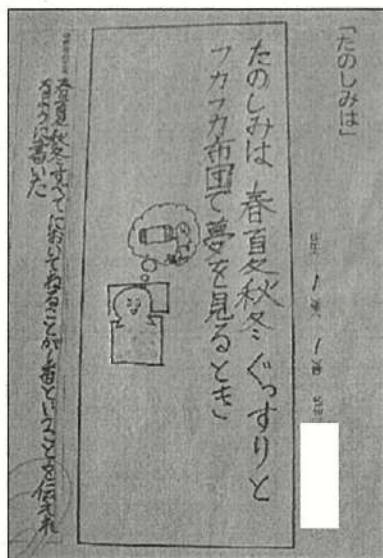 「たのしみは」
1組 1番
たのしみは 春夏秋冬 ぐっすりと
フカフカ布団で夢を見るとき
春夏秋冬すべてにおいてねることが1番ということを伝えれ
るように書いた